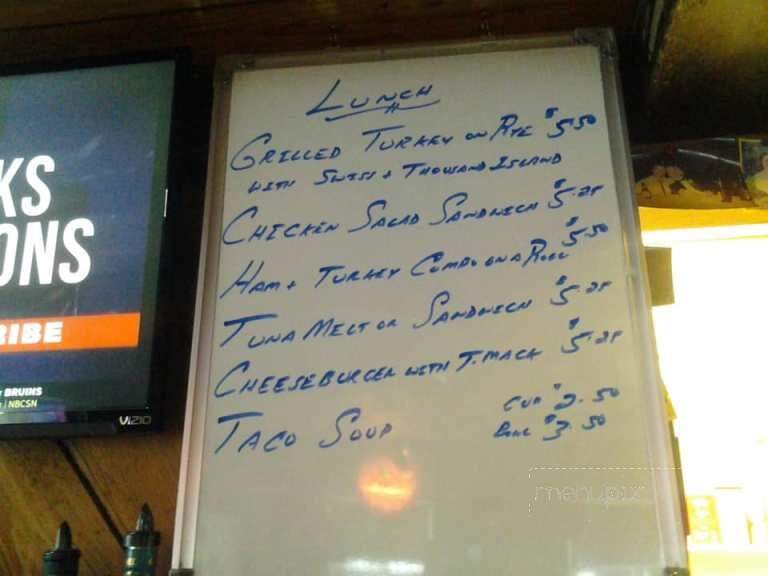 LUNCH
GRILLED TURKEY ON RYE $5.50
WITH SWISS + THOUSAND ISLAND
CHICKEN SALAD SANDWICH $5.25
HAM + TURKEY COMBO ON A ROLL $5.50
TUNA MELT OR SANDWICH $5.25
CHEESEBURGER WITH T. MACK $5.25
TACO SOUP CUP $2.50
BOWL $3.50
KS
ONS
RIBE
BRUINS
NBCSN
VIZIO
menupix